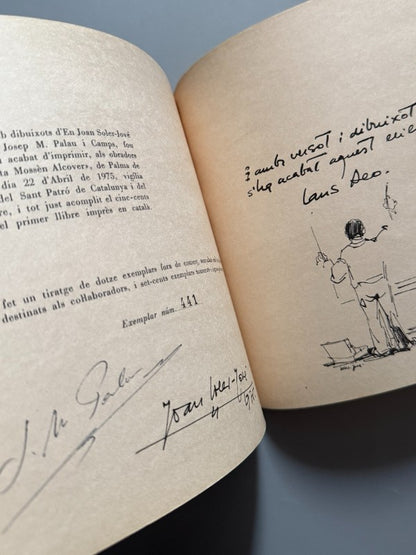 b dibuixots d'En Joan Soler-Jové
Josep M. Palau i Camps, fou
acabat d'imprimir, als obradors
ta Mossèn Alcover, de Palma de
dia 22 d'Abril de 1975, vigília
del Sant Patró de Catalunya i del
re, i tot just acomplit el cinc-cents
el primer llibre imprès en català.
fet un tiratge de dotze exemplars fora de comerç,
destinats als col·laboradors, i set-cents exemplars
Exemplar núm. 441
J. M. Palau
Joan Soler-Jové
I amb versot i dibuixot
s'ha acabat aquest
Laus Deo.